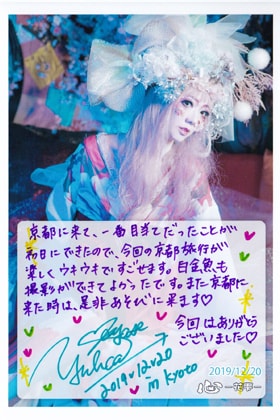 京都に来て、一番目当てだったことが
初日にできたので、今回の京都旅行が
楽しくウキウキですごせます。白金魚も
撮影ができてよかったです。また京都に
来た時は、是非あそびに来ます♡
今回はありがとう
ございました♡
2019.12.20
in Kyoto
2019/12/20
心-花雫-